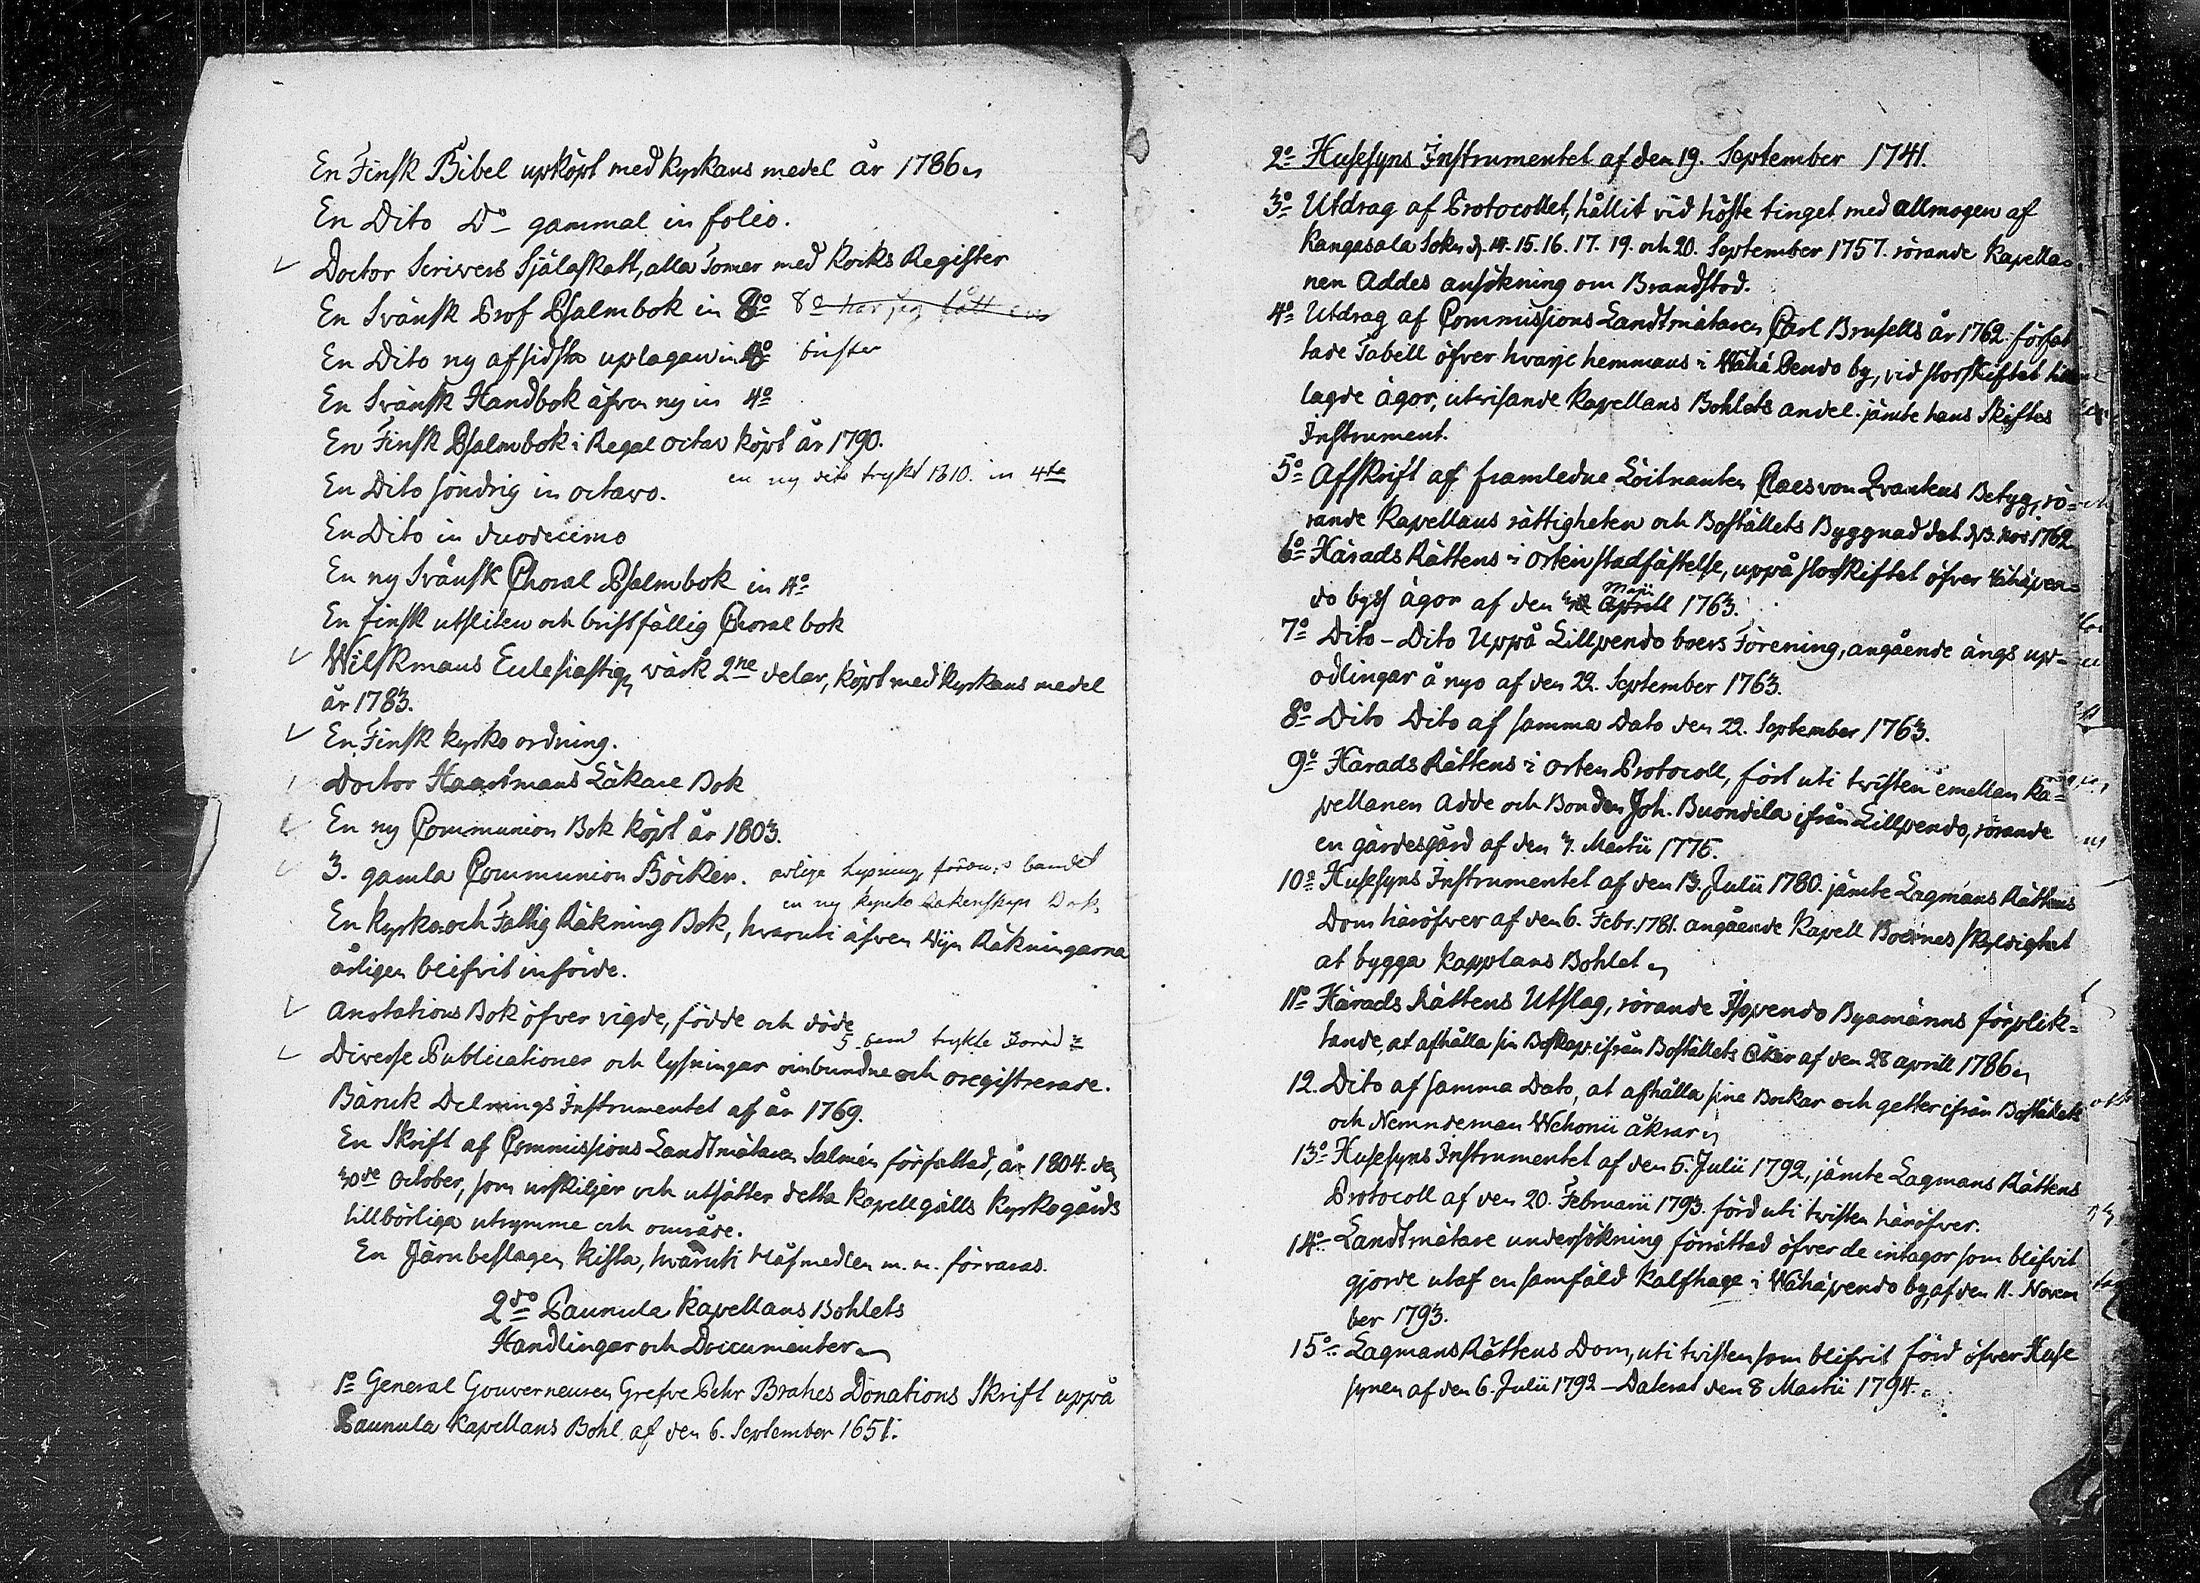 En Finsk Bibel upköpt med kyrkans medel år 1786
En Dito Do gammal in folio.
Doctor Scrivers Själaskatt, alla Tomer med Kocks Register
En Svänsk Prof Psalmbok in 8o 8o har jag fått
En Dito ny af sidsta uplagan in 4o
En Svänsk Handbok äfven ny in 4o
En Finsk Psalmbok i Regal octav köpt år 1790.
en ny dito tryckt 1810. in 4to
En Dito söndrig in octavo.
En Dito in duodecimo
En ny Svänsk Choral Psalmbok in 4o
En finsk utsliten och bristfällig Choral bok
Wilskmans Eclesiastiqz värk 2ne delar, köpt med kyrkans medel
år 1783.
En Finsk kyrko ordning.
Doctor Haartmans Läkare Bok
En ny Communion Bok köpt år 1803.
3. gamla Communion Böcker. bandet
en ny kyrko Räkenskaps Bok
En kyrko och Fattig Räkning Bok, hvaruti äfven Wijn Räkningarna
årligen blifvit införde.
Anotations Bok öfver vigde, födde och döde
5 band tryckte
Diverse Publicationer och lysningar oinbundne och oregistrerade.
Bänck Delnings Instrumentet af år 1769.
En Skrift af Commissions Landtmätaren Salmén författad, år 1804. den
30de October, som urskiljer och utsätter detta Kapellgälls Kyrkogårds
tillbörliga utrymme och område.
En Järnbeslagen kista, hvaruti Håfmedlen m. m. förvaras.
2do Paunula Kapellans Bohlets
Handlingar och Documenter
1o General Gouverneuren Grefve Pehr Brahes Donations Skrift uppå
Paunula Kapellans Bohl af den 6. September 1651.
2o Husesyns Instrumentet af den 19. September 1741.
3o Utdrag af Protocollet, hållit vid höste tinget med allmogen af
Kangasala Sokn d. 14. 15. 16. 17. 19. och 20. September 1757. rörande Kapella=
nen Addes ansökning om Brandstod.
4o Utdrag af Commissions Landtmätaren Carl Brusells år 1762. förfat
tade Tabell öfver hvarje hemmans i Wähä Pendo by, vid storskiftet till
lagde ägor, utvisande Kapellans Bohlets andel jämte hans Skiftes
Instrument.
5o Afskrift af framledne Löitnanten Claes von Qvantens Betyg, rö=
rande Kapellans rättigheten och Boställets Byggnad dat. d. 3. Nov. 1762
6o Härads Rättens i orten stadfästelse, uppå storskiftet öfver Wähäpen=
do bys ägor af den Maji Aprill 1763.
7o Dito - Dito Uppå Lillpendo boers Förening, angående ängs up=
odlingar å nyo af den 22. September 1763.
8o Dito Dito af samma Dato den 22. September 1763.
9o Härads Rättens i orten Protocoll, fört uti twisten emellan Ka=
pellanen Adde och Bonden Joh. Buondila ifrån Lillpendo, rörande
en gärdesgård af den 7. Martii 1775.
10o Husesyns Instrumentet af den 13. Julii 1780. jämte Lagmans Rättens
Dom häröfwer af den 6. Febr. 1781. angående Kapell Boernes skyldighet
at bygga Kapplans Bohlet
11o Härads Rättens Utslag, rörande Isopendo Byamänns förplik=
tande, at afhålla sin Boskap ifrån Boställets Åker af den 28 aprill 1786
12. Dito af samma Dato, at afhålla sine Bockar och getter ifrån Boställets
och Nemndeman Wehonii åkrar
13o Husesyns Instrumentet af den 6. Julii 1792, jämte Lagmans Rättens
Protocoll af den 20. Februarii 1793. förd uti twisten häröfver.
14o Landtmätare undersökning förrättad öfver de intagor som blifvit
gjorde utaf en samfäld Kalfhage i Wähäpendo by, af den 11. Novem
ber 1793.
15o Lagmans Rättens Dom, uti twisten som blifvit förd öfver Huse
synen af den 6. Julii 1792 - Daterat den 8 Martii 1794.